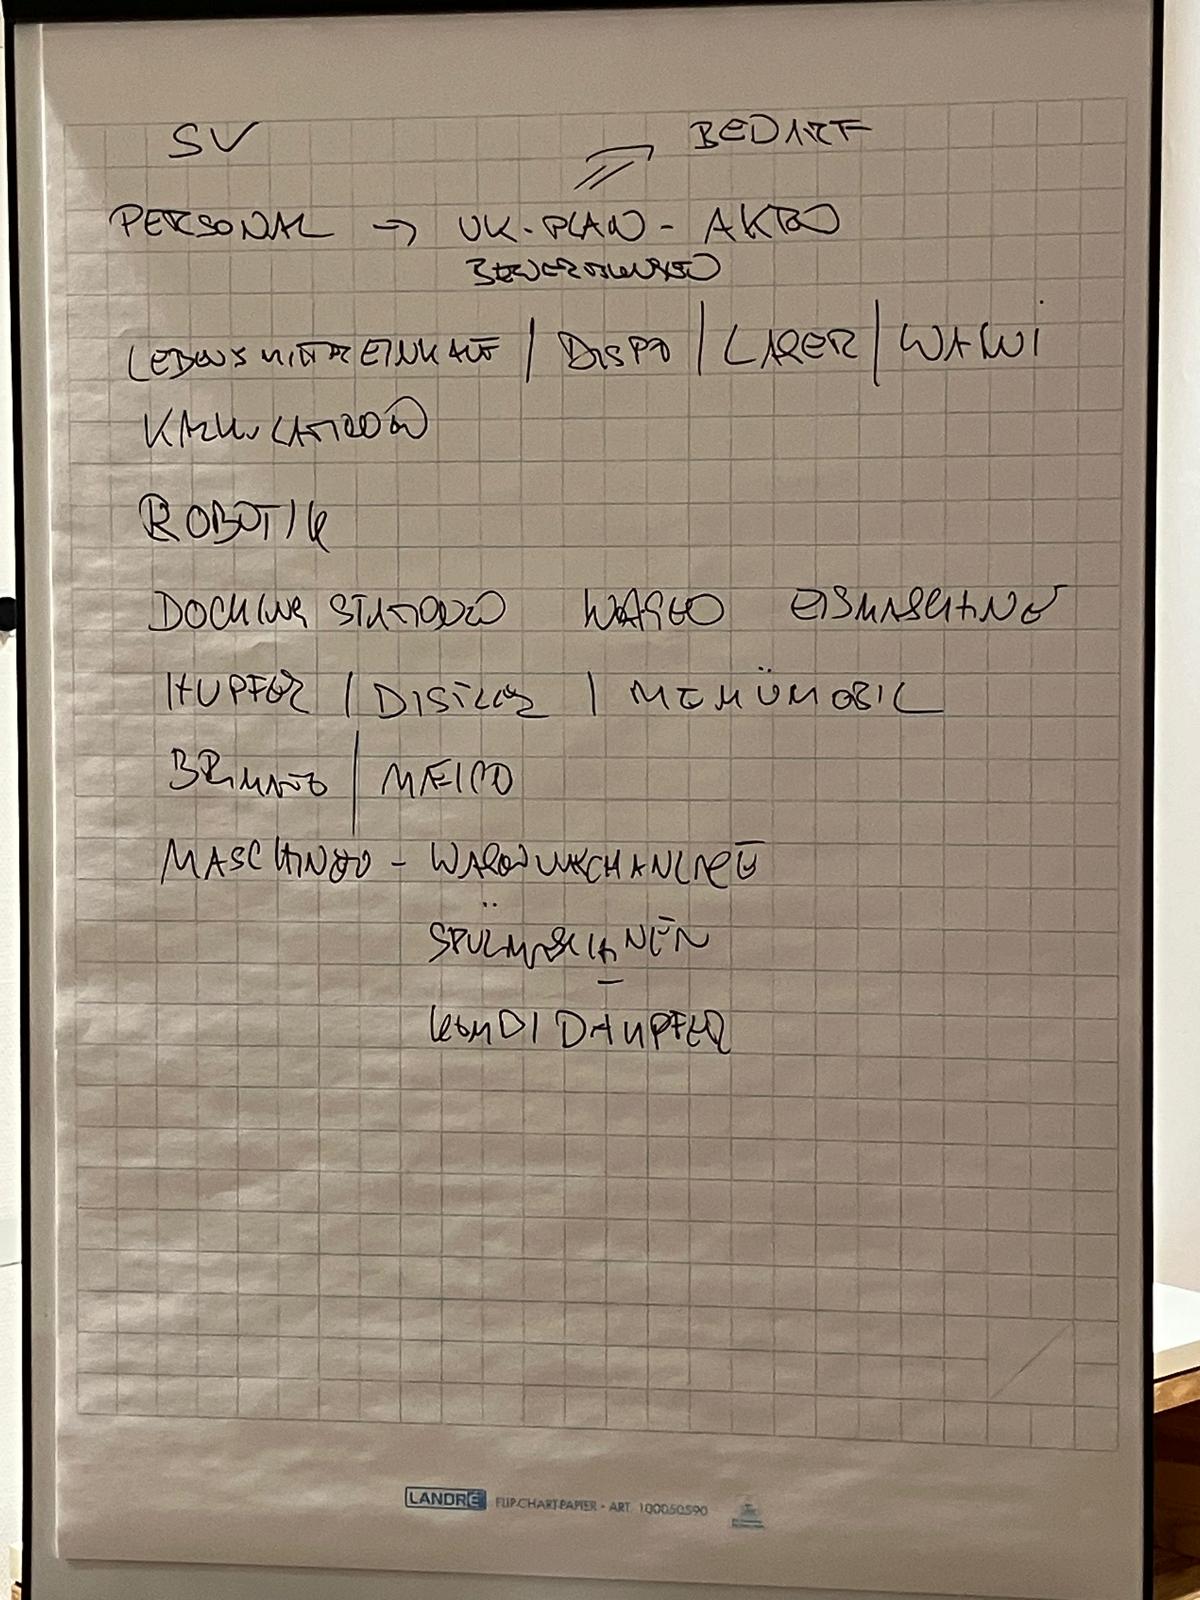 SV
BEDARF
PERSONAL → UK-PLAN - AKTO
BEWERBUNGEN
LEBENSMITTELEINKAUF | DISPO | LAGER | WAWI
KALKULATION
ROBOTIK
DOCKING STATIONEN WAGEN EISMASCHINE
HUPFER | DISTLER | MENÜMOBIL
| MEICO
MASCHINEN -
SPÜLMASCHINEN
KOMBIDÄMPFER
LANDRÉ FLIP-CHART-PAPIER • ART. 100050590